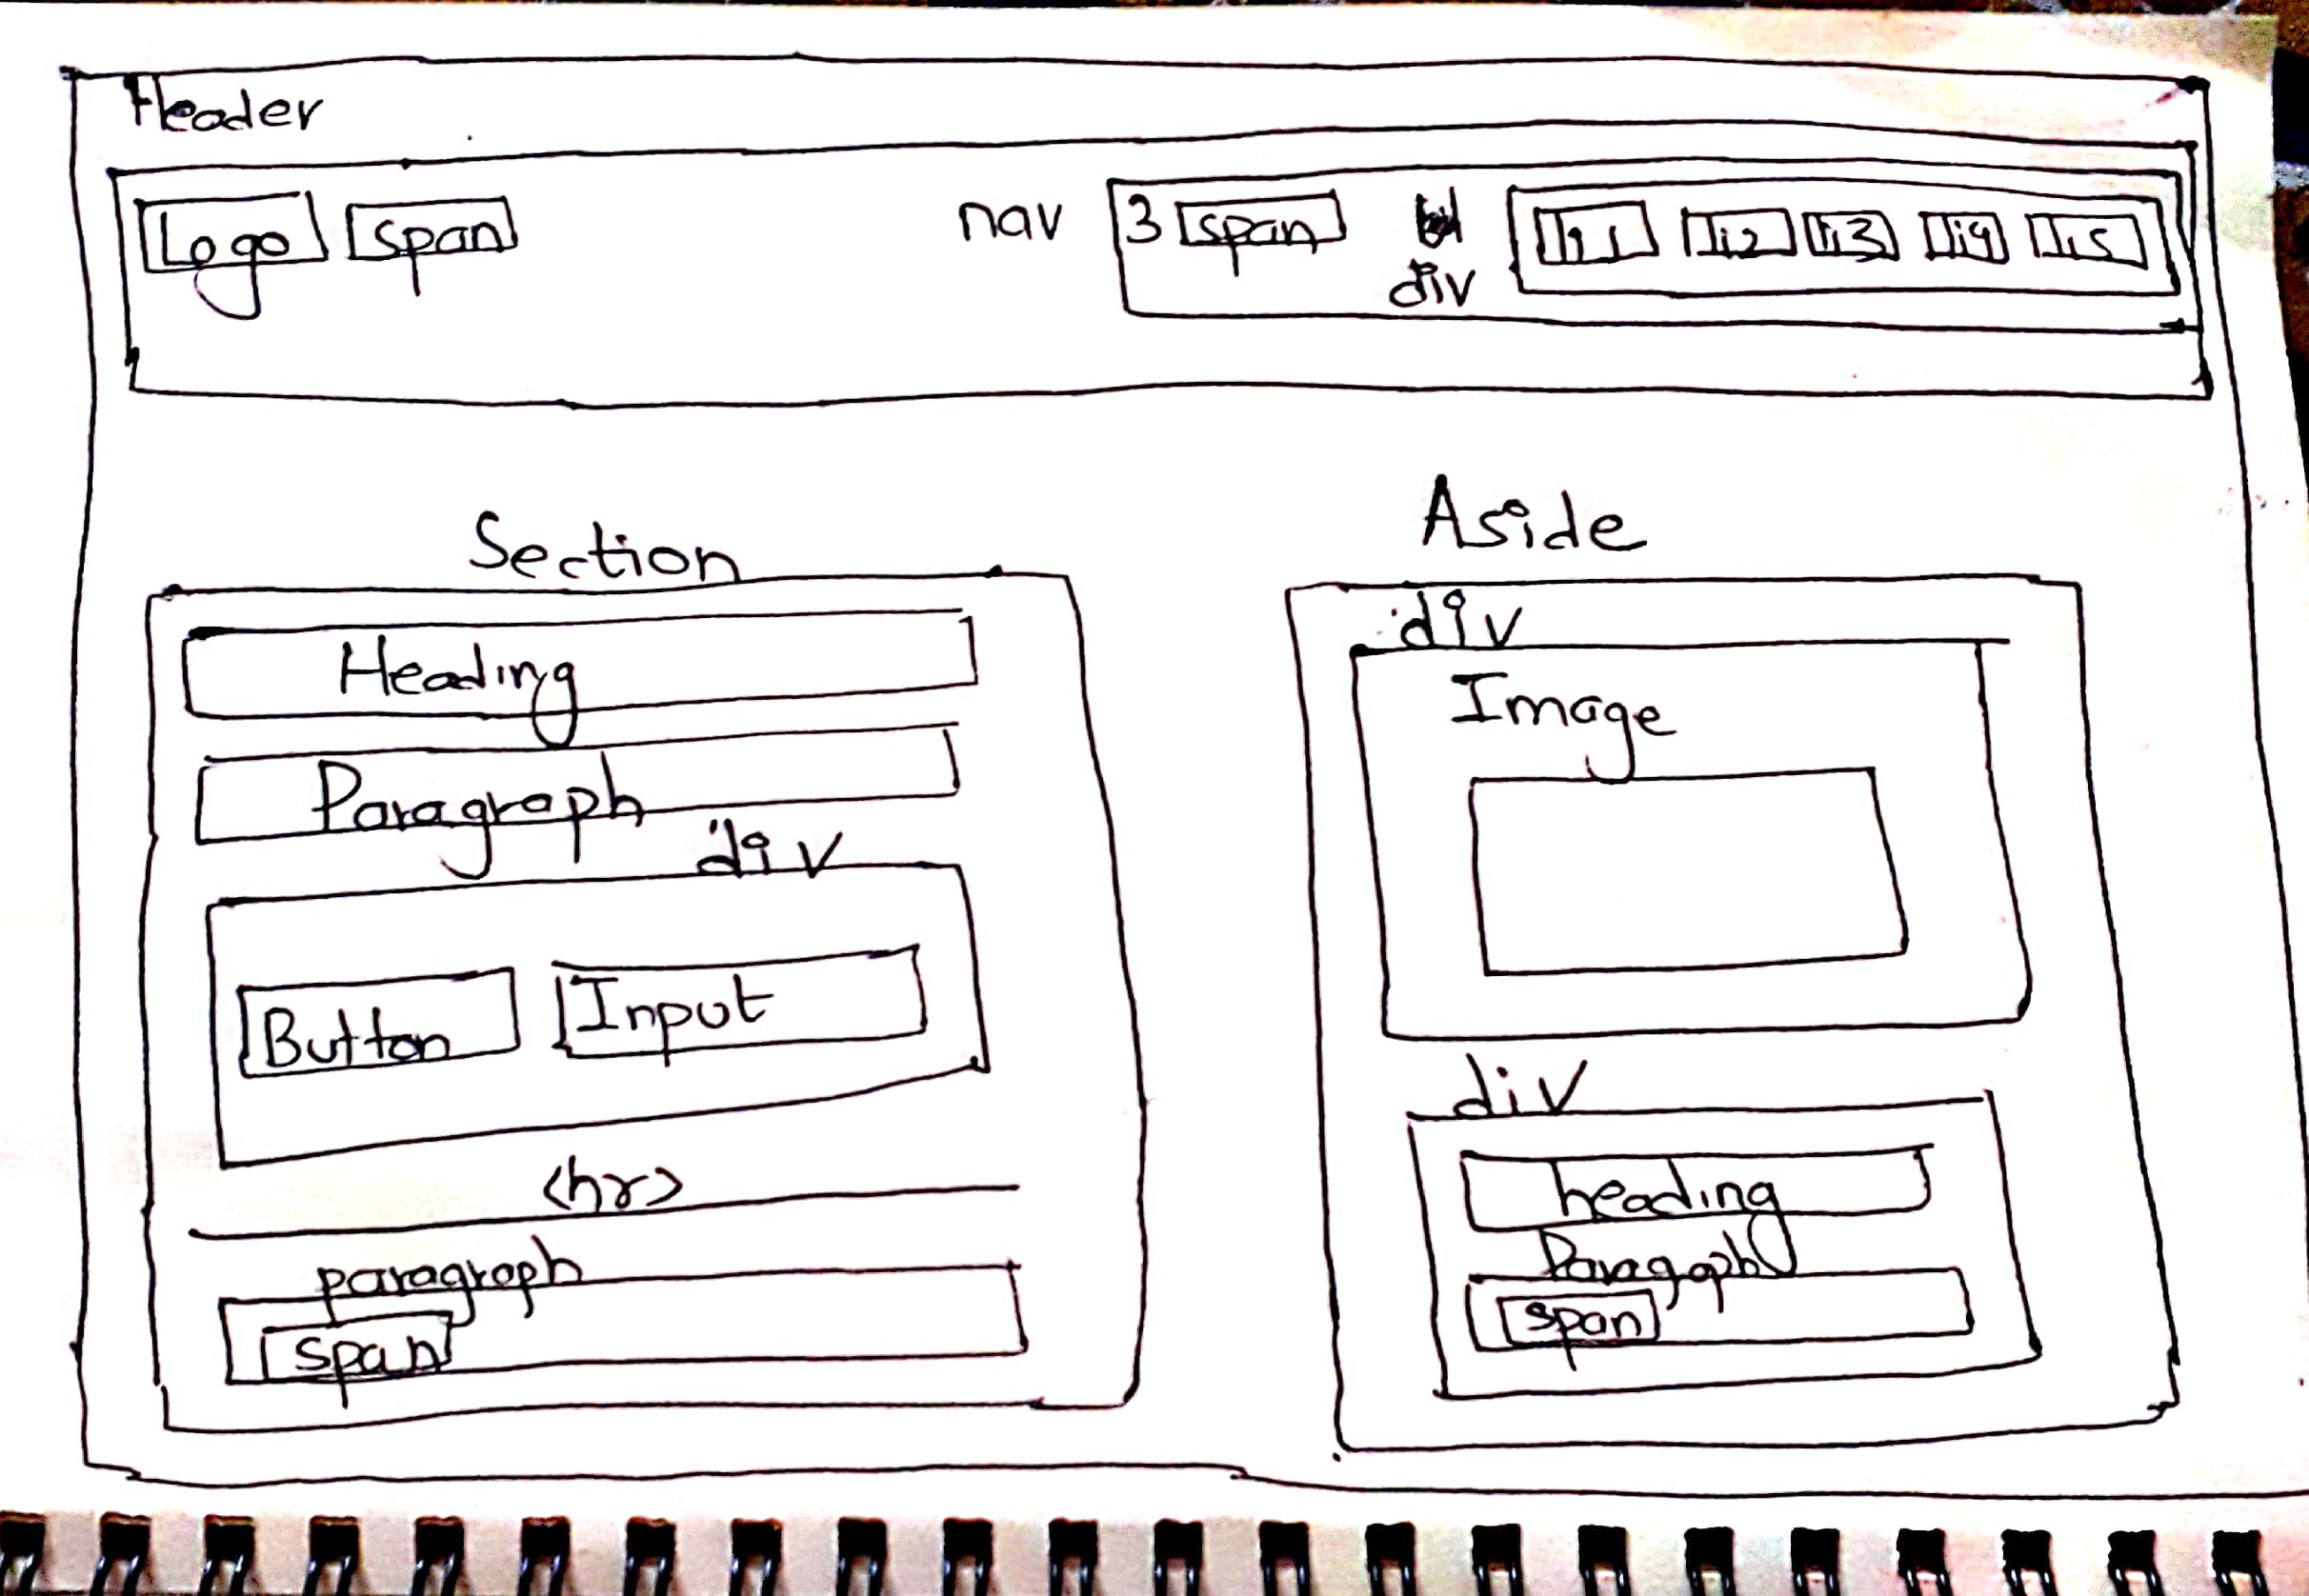 Header
Logo span nav 3 span div li1 li2 li3 li4 li5
Section
Heading
Paragraph
div
Button Input
<hr>
paragraph
span
Aside
div
Image
div
heading
Paragraph
span